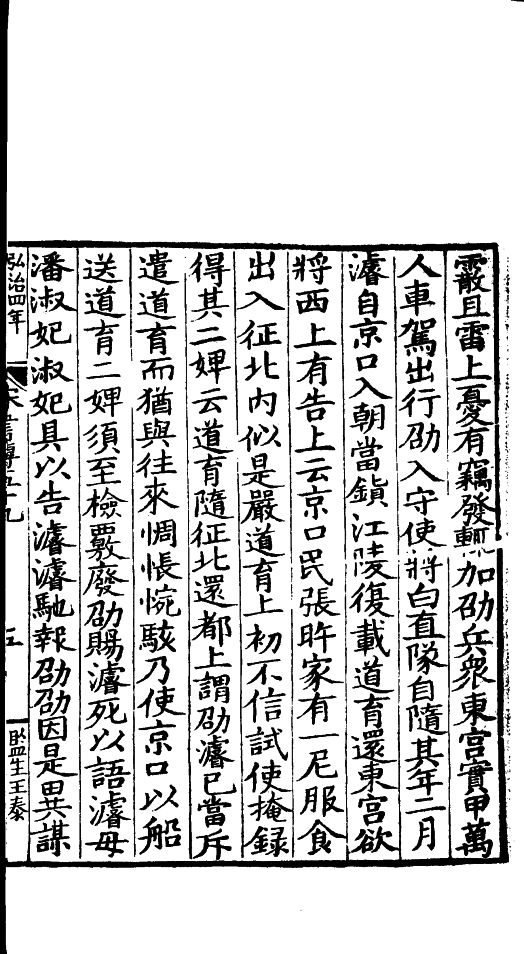 霰且雷上憂有竊發輒加劭兵衆東宮實甲萬
人車駕出行劭入守使將白直隊自隨其年二月
濬自京口入朝當鎮江陵復載道育還東宮欲
將西上有告上云京口民張旿家有一尼服食
出入征北内似是嚴道育上初不信試使掩録
得其二婢云道育隨征北還都上謂劭濬已當斥
遣道育而猶與往來惆悵惋駭乃使京口以船
送道育二婢須至檢覈廢劭賜濬死以語濬母
潘淑妃淑妃具以告濬濬馳報劭劭因是異謀
弘治四年
五
監生王泰